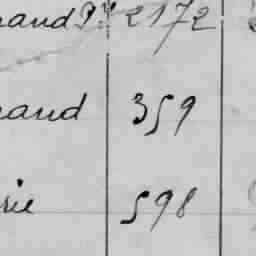 and P.re 2172
and 359
rie 598